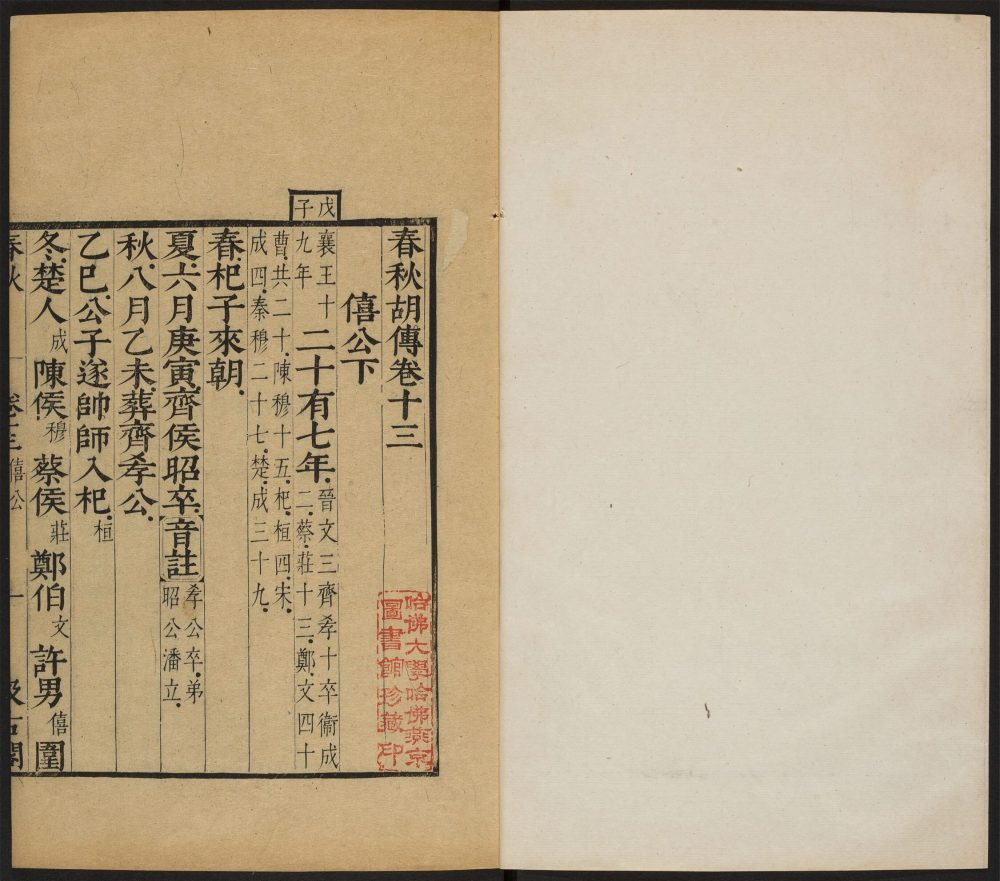 戊子
春秋胡傳卷十三
僖公下
襄王十九年二十有七年．晉文三齊孝十卒衞成二．蔡．莊十三．鄭．文四十
曹．共二十．陳穆十五．杞．桓四．宋．
成四．秦穆二十七．楚．成三十九．
春．杞子來朝．
夏．六月庚寅．齊侯昭卒．【音註】孝公卒．弟昭公潘立．
秋．八月乙未．葬齊孝公．
乙巳．公子遂帥師入杞．桓
冬．楚人成陳侯．穆蔡侯莊鄭伯文許男僖圍
春秋 卷十三 僖公 一 汲古閣
哈佛大學哈佛燕京
圖書館珍藏印